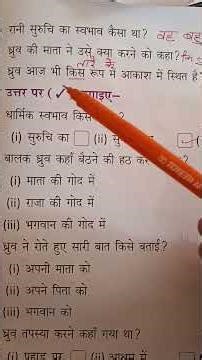 रानी सुरुचि का स्वभाव कैसा था? वह
ध्रुव की माता ने उसे क्या करने को कहा?
तारे के
ध्रुव आज भी किस रूप में आकाश में स्थित है
उत्तर पर (✓
धार्मिक स्वभाव
(i) सुरुचि का (ii)
बालक ध्रुव कहाँ बैठने की हठ
(i) माता की गोद में
(ii) राजा की गोद में
(iii) भगवान की गोद में
ध्रुव ने रोते हुए सारी बात किसे बताई?
(i) अपनी माता को
(ii) अपने पिता को
(iii) भगवान को
ध्रुव तपस्या करने कहाँ गया था?
(i) पहाड़ पर (ii) आश्रम में